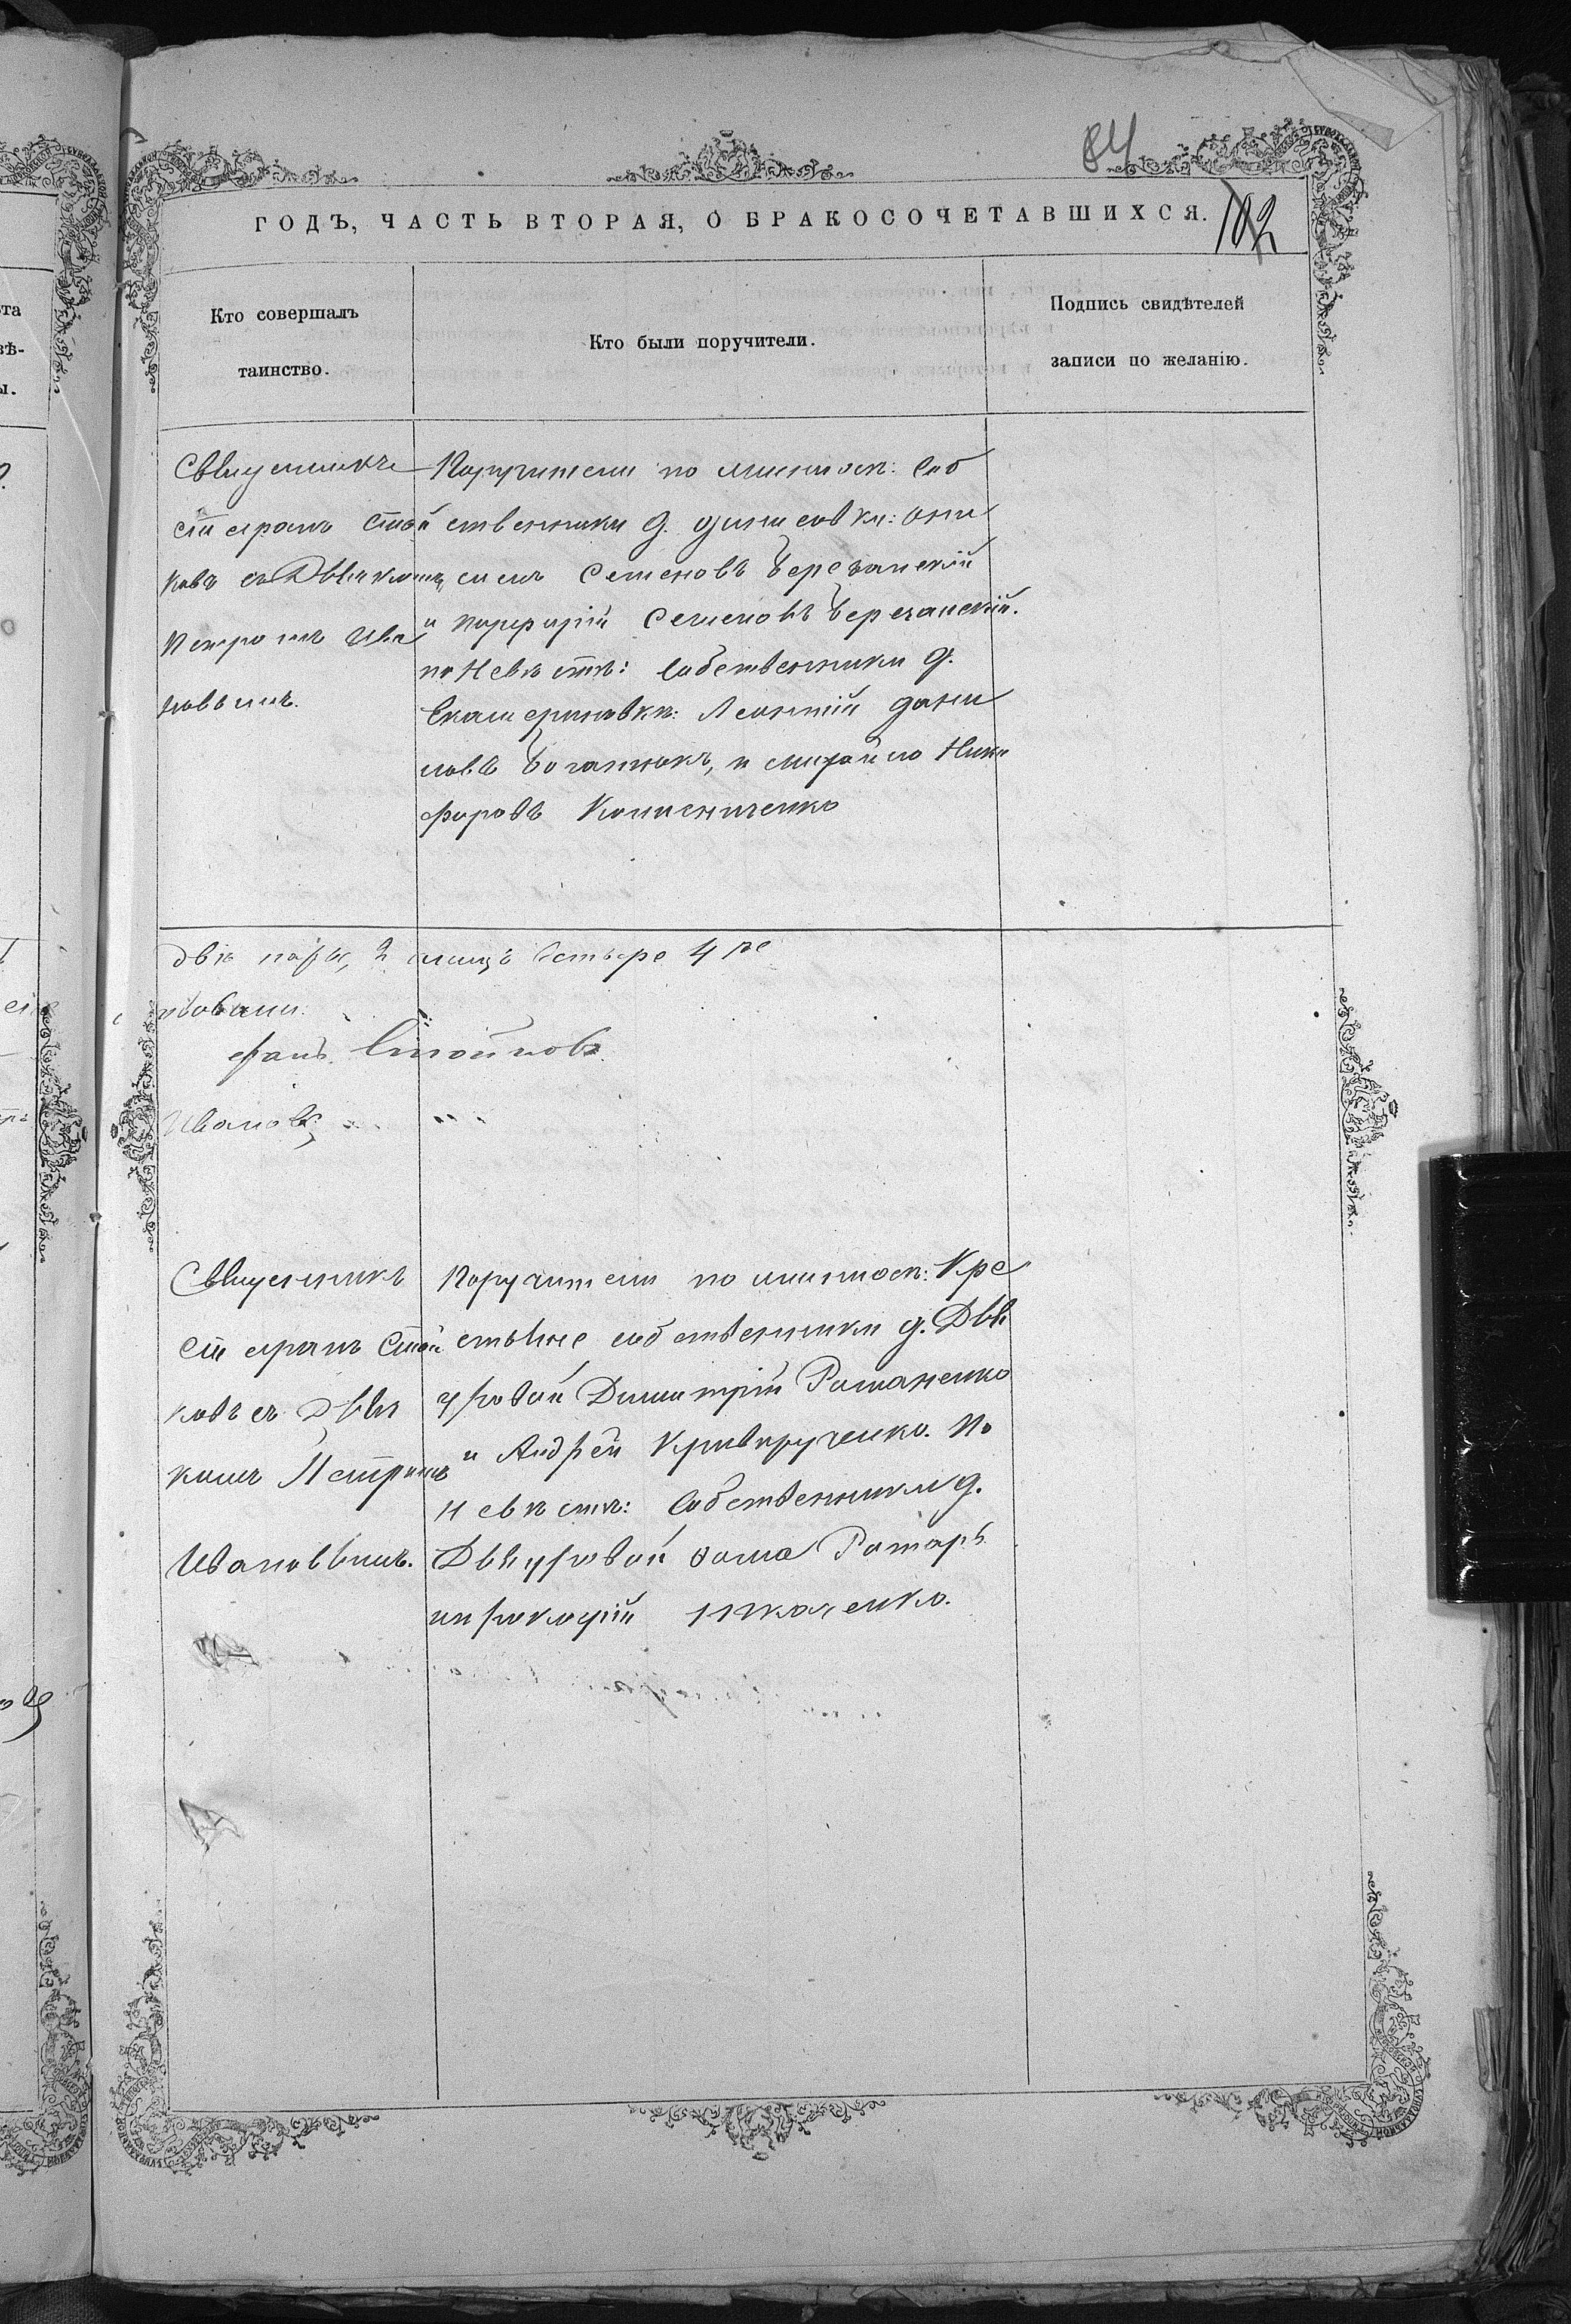 84
ГОДЪ, ЧАСТЬ ВТОРАЯ, О БРАКОСОЧЕТАВШИХСЯ.
102
Кто совершалъ
таинство.
Кто были поручители.
Подпись свидѣтелей
записи по желанію.
Священникъ
Стефанъ Стой
ковъ съ Дьячкомъ
Петромъ Ива
новымъ.
Поручители по женихѣ: Соб
ственники д.
Семеновъ Березанскій
и Порфирій Семеновъ Березанскій.
по Невѣстѣ: Собственники д.
Екатериновки: Леонтій Дани
ловъ Богатюкъ, и Михаило Ники
форовъ Коломійченко
двѣ пары, 2 лицъ четыре 4 ре
новыми
фанъ Стойковъ
Ивановъ
Священникъ
Стефанъ Стой
ковъ съ Дья
комъ Петромъ
Ивановымъ.
Поручители по женихѣ: Кре
стьяне собственники д. Двя
уровой Димитрій Романенко
и Андрей Криворученко. По
Невѣстѣ: Собственники д.
Ѳома Ротарь
и Прокофій Ткаченко.